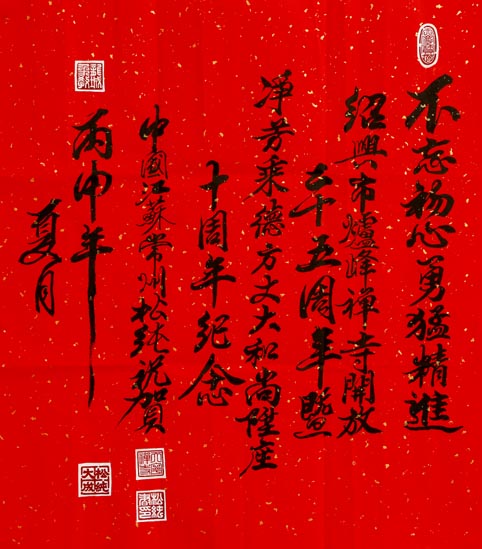 不忘初心勇猛精進
紹興市爐峰禪寺開放
二十五周年暨
淨芳乘德方丈大和尚陞座
十周年纪念
中國江蘇常州松純祝賀
丙申年
夏月